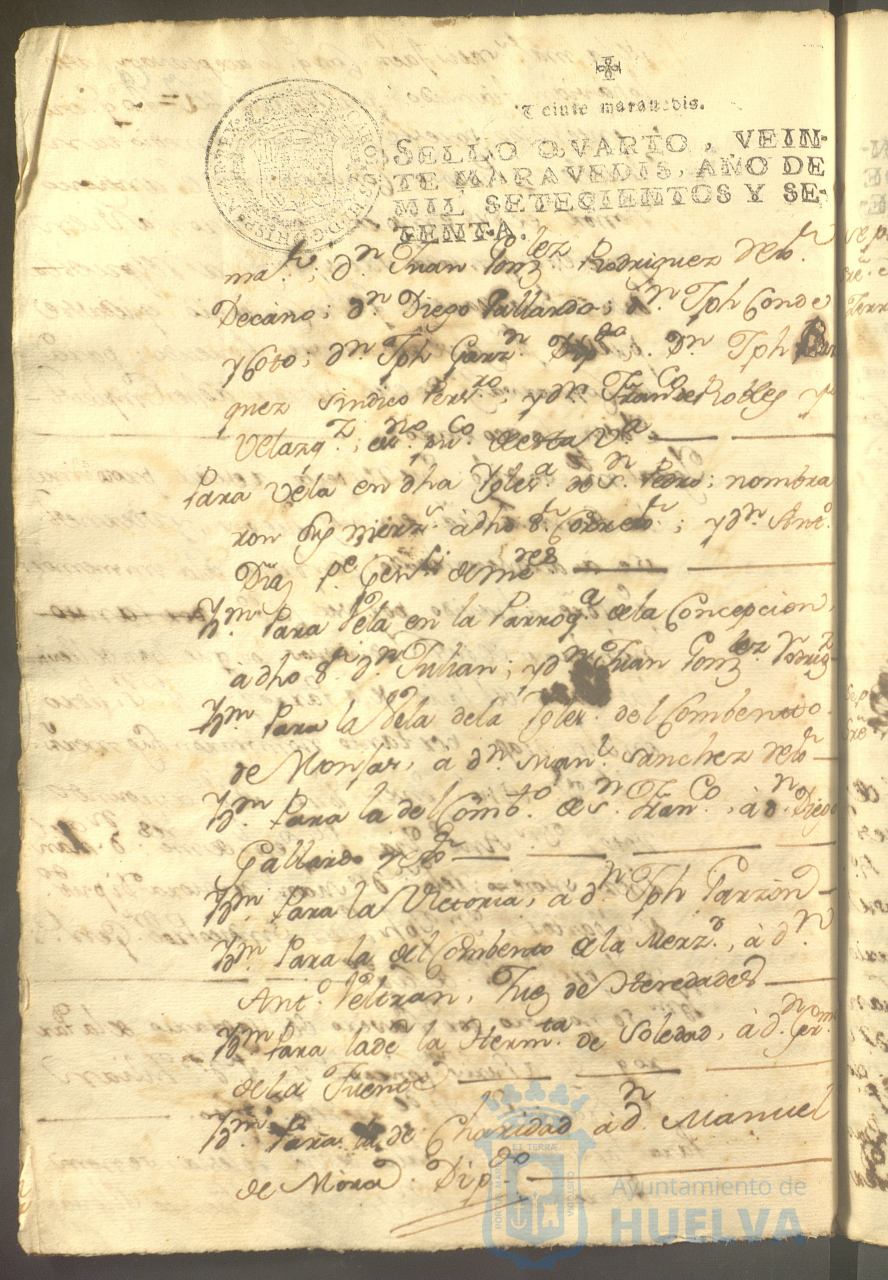 Veinte maravedis.
SELLO QVARTO, VEIN-
TE MARAVEDIS, AÑO DE
MIL SETECIENTOS Y SE-
TENTA.
CAROLUS III D G HISPANIAR REX
dn Juan Gonzlez Rodriguez de
Decano; dn Diego Gallardo; dn Jph Conde
y Soto; dn Jph Garzn Dipdo. Dn Jph
quez sindico Persro; y dn Franco de Robles y
Velazqz; esno puco de esta Va
Para Vela en dha Yglesa de Sn Pedro; nombra
ron sus mierzs à dho Sr Correxr; y dn Anto
Diaz, Pe Genl. de mres
Ytm Para Vela en la Parroqa de la Concepcion,
à dho Sr dn Julian; y dn Juan Gonzlez Rodrigz
Ytm Para la Vela de la Ygles. del Combento
de Monjas, a dn Manl Sanchez de
Ytm Para la del Combto de Sn Franco, à dn Diego
Gallardo
Ytm Para la Victoria, a dn Jph Garzòn
Ytm Para la del Combento de la Merzd, à dn
Anto Veltran, Juez de Heredades
Ytm Para la de la Hermta de Soledad, à dn
de la Fuente
Ytm Para la de Charidad à dn Manuel
de Mora Dipdo
Ayuntamiento de
HUELVA